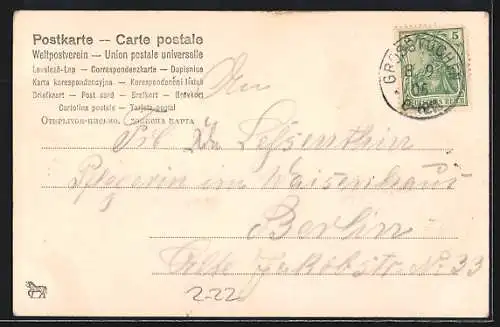 Postkarte – Carte postale
Weltpostverein – Union postale universelle
Levelező-Lap – Correspondenzkarte – Dopisnice
Karta korespondencyjna – Korespondenční lístek
Briefkaart – Post card – Brefkort – Brevkort
Cartolina postale – Tarjeta postal
An
5
Frl. Ida
Pflegerin im Waisenhaus
Berlin
Alte Jakobstr. No. 33
2-22